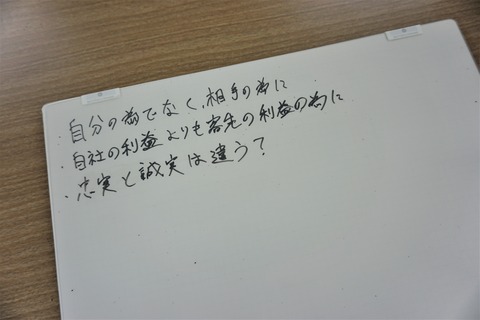 自分の為でなく、相手の為に
・自社の利益よりも客先の利益の為に
・忠実と誠実は違う?